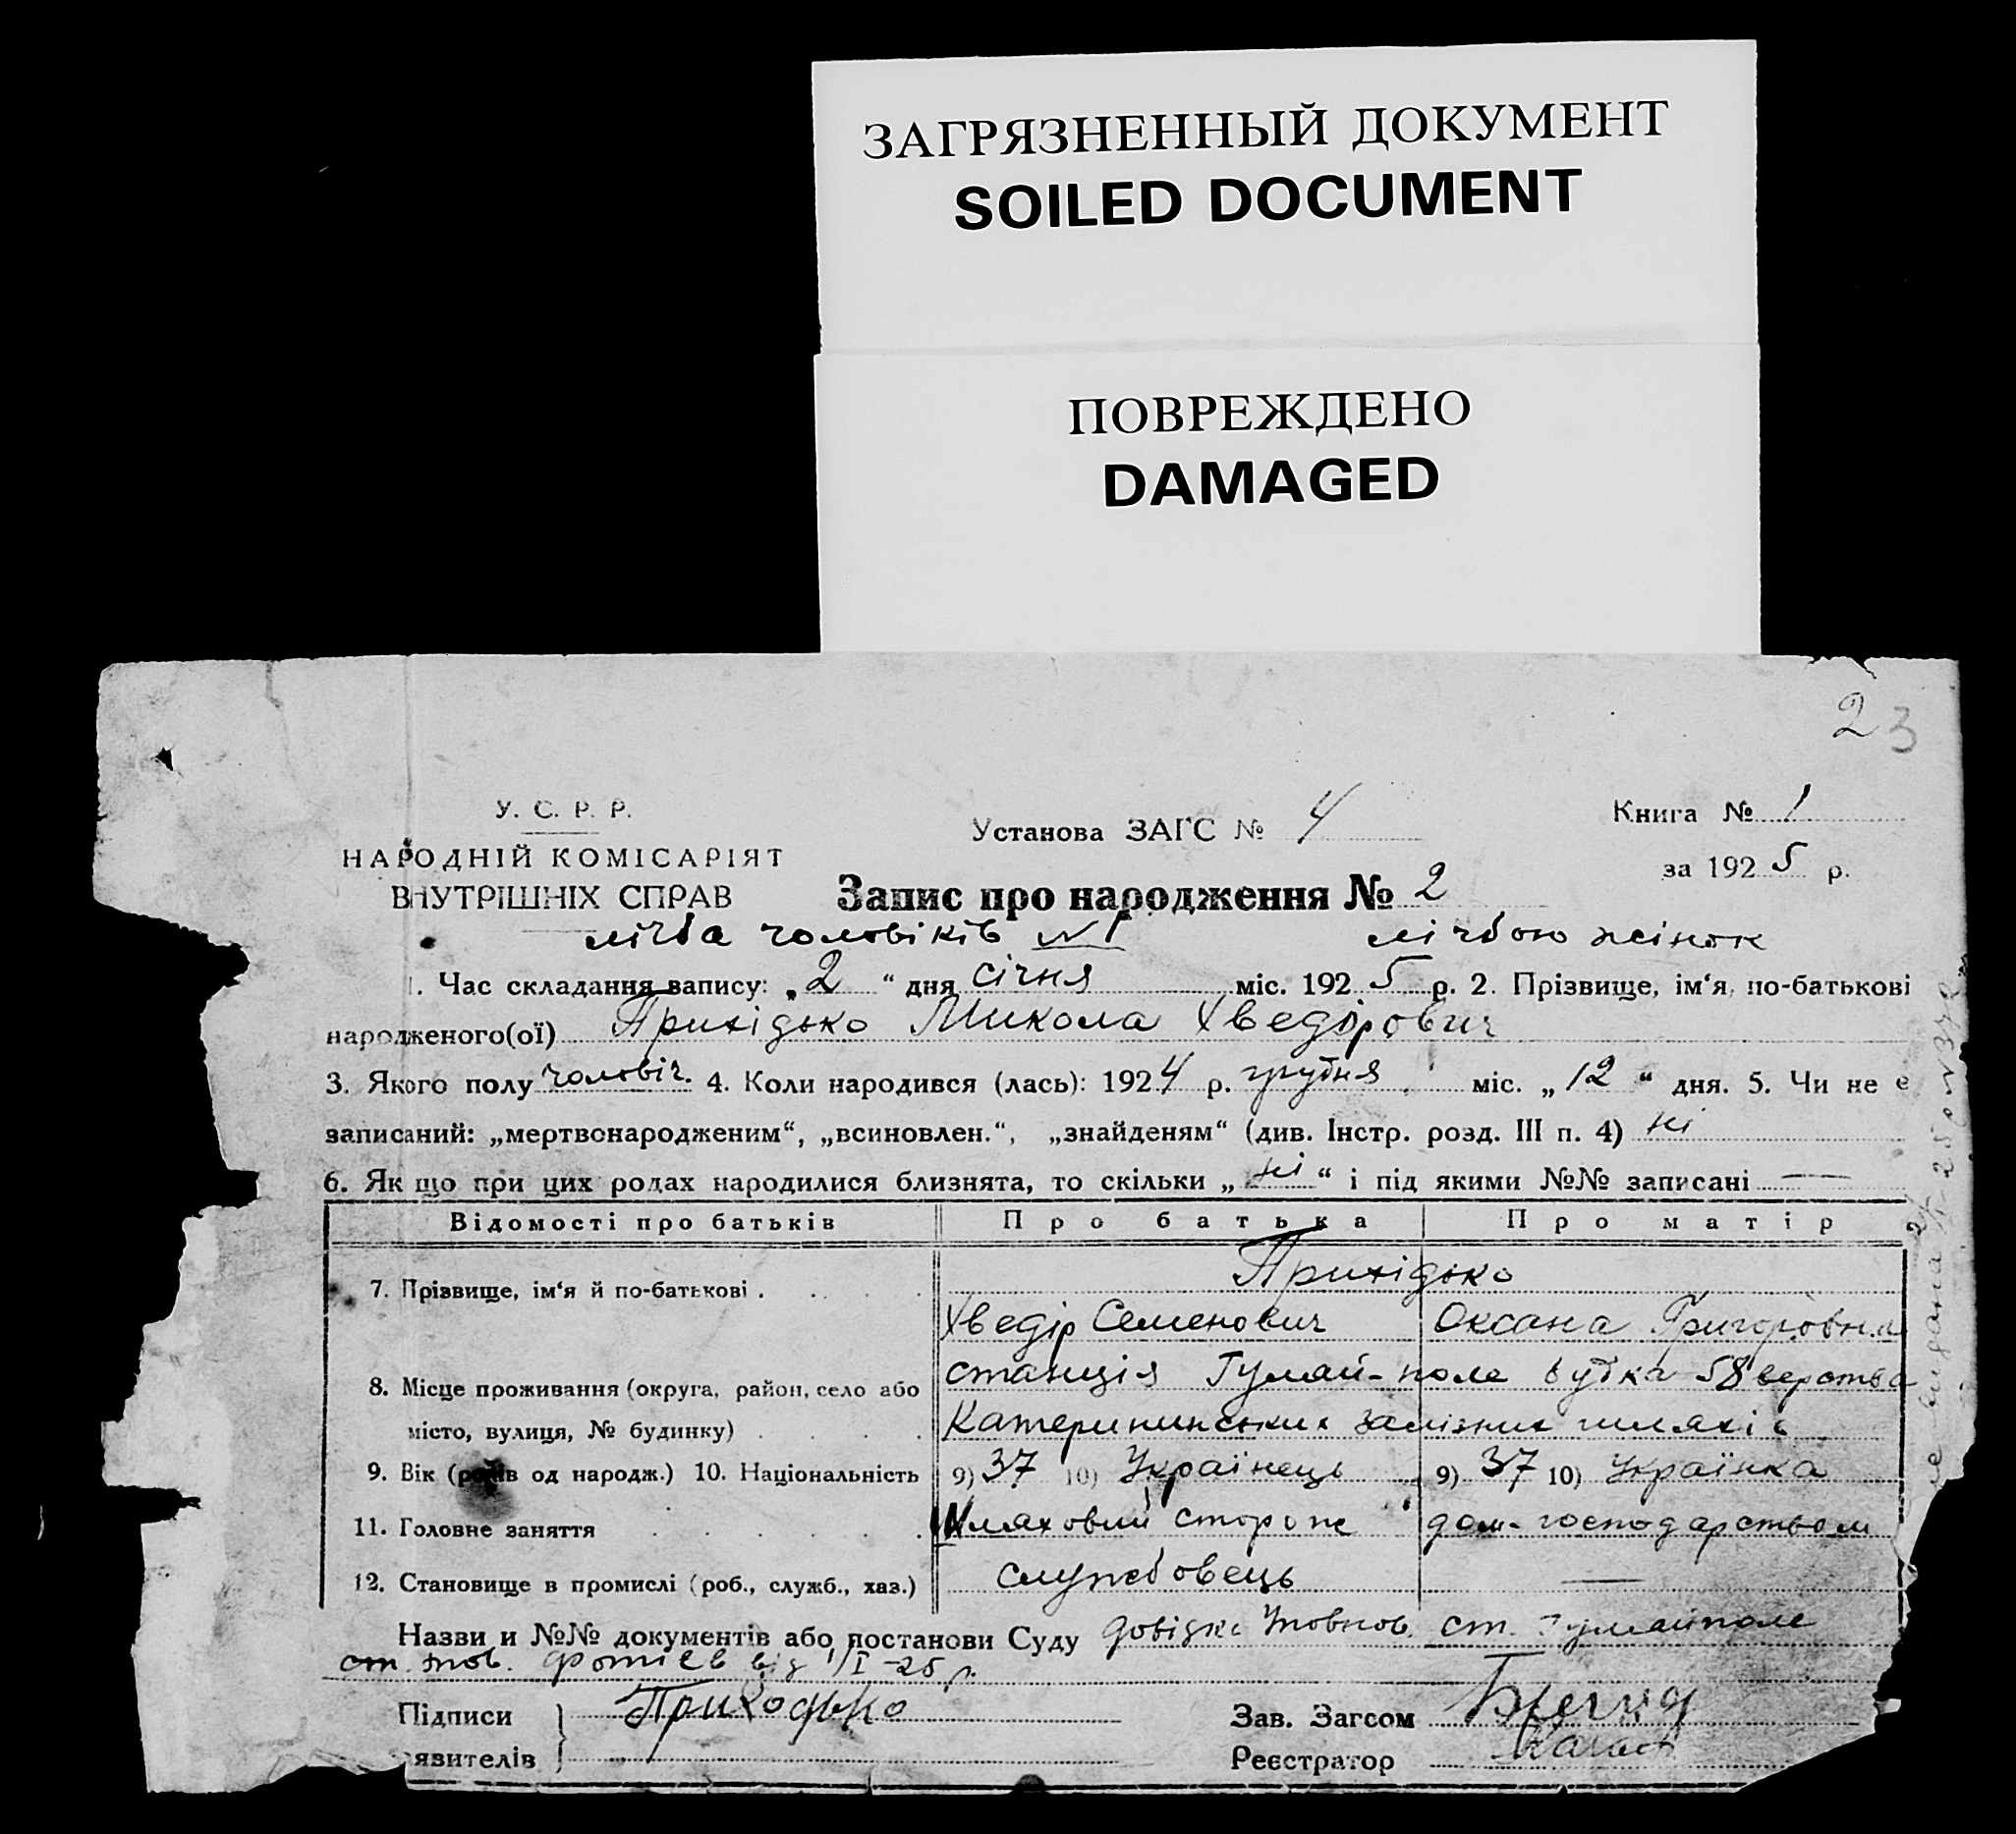 ЗАГРЯЗНЕННЫЙ ДОКУМЕНТ
SOILED DOCUMENT
ПОВРЕЖДЕНО
DAMAGED
2 3
У. С. Р. Р.
НАРОДНІЙ КОМІСАРІЯТ
ВНУТРІШНІХ СПРАВ
Установа ЗАГС № 4
Книга № 1
за 1925 р.
Запис про народження № 2
лічба чоловіків №1 лічбою жінок
1. Час складання запису: „2“ дня січня міс. 1925 р. 2. Прізвище, ім‘я, по-батькові
народженого(ої) Прихідько Микола Хведірович
3. Якого полу чоловіч. 4. Коли народився (лась): 1924 р. грудня міс. „12“ дня. 5. Чи не є
записаний: „мертвонародженим“, „всиновлен.“, „знайденям“ (див. Інстр. розд. III п. 4) ні
6. Як що при цих родах народилися близнята, то скільки „ні“ і під якими №№ записані —
Відомості про батьків Про батька Про матір
7. Прізвище, ім‘я й по-батькові . . . . . Прихідько
Хведір Семенович Оксана Григоровна
8. Місце проживання (округа, район, село або станція Гуляй-поле будка 58 верства
місто, вулиця, № будинку) . . . . Катерининських залізних шляхів
9. Вік (років од народж.) 10. Національність 9) 37 10) Українець 9) 37 10) Українка
11. Головне заняття . . . . . . Шляховий сторож дом-господарством
12. Становище в промислі (роб., служб., хаз.) службовець —
Назви и №№ документів або постанови Суду довідка ст. Гуляйполе
ст. від 1/I-25 р.
Підписи Приходько Зав. Загсом
явителів Реєстратор